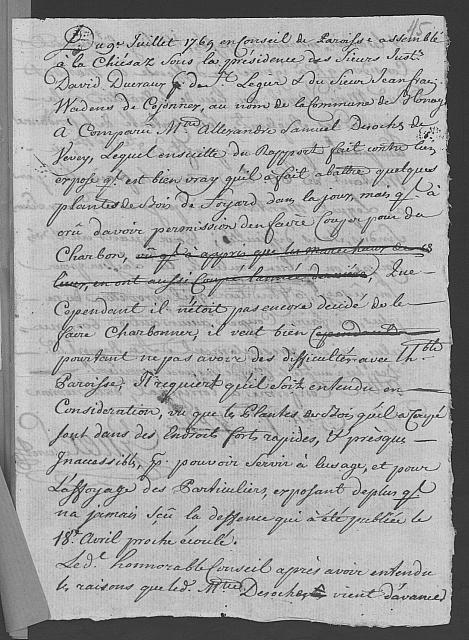 115
Du 9e Juillet 1769 en Conseil de Paroisse assemblé
a la Chiesaz sous la présidence des Sieurs Just.r
David Ducraux de St Leger & du Sieur Jean fra.
de Cojonnex, au nom de la Commune de
à Comparu Mr Alexandre Samuel Desoches de
Vevey, Lequel ensuitte du Rapport fait contre lui
expose q.l est bien vray qu'il à fait abattre quelques
plantes de Bois de foyard dans la joux, mais q.l à
crû d'avoir permission d'en faire Couper pour du
Charbon, vu q.l à appris que les marechaux de ces
lieux, en ont aussi Coupé l'année derniere, Que
Cependant il n'étoit pas encore decidé de le
faire Charbonner, il veut bien Cependant
pourtant ne pas avoir des difficultés avec l'h.ble
Paroisse, Il requiert qu'il soit entendu en
Consideration, vu que les Plantes de Bois qu'il a Coupé
sont dans des Endroits forts rapides, & presque
Inacessible, p.r pouvoir servir à l'usage, et pour
L'affoyage des Particuliers, exposant de plus q.l
n'a jamais sçu la deffence qui à été publiée le
18e Avril proche ecoulé.
Led.t honnorable Conseil après avoir entendu
les raisons que led. Mr Desoches vient d'avancer